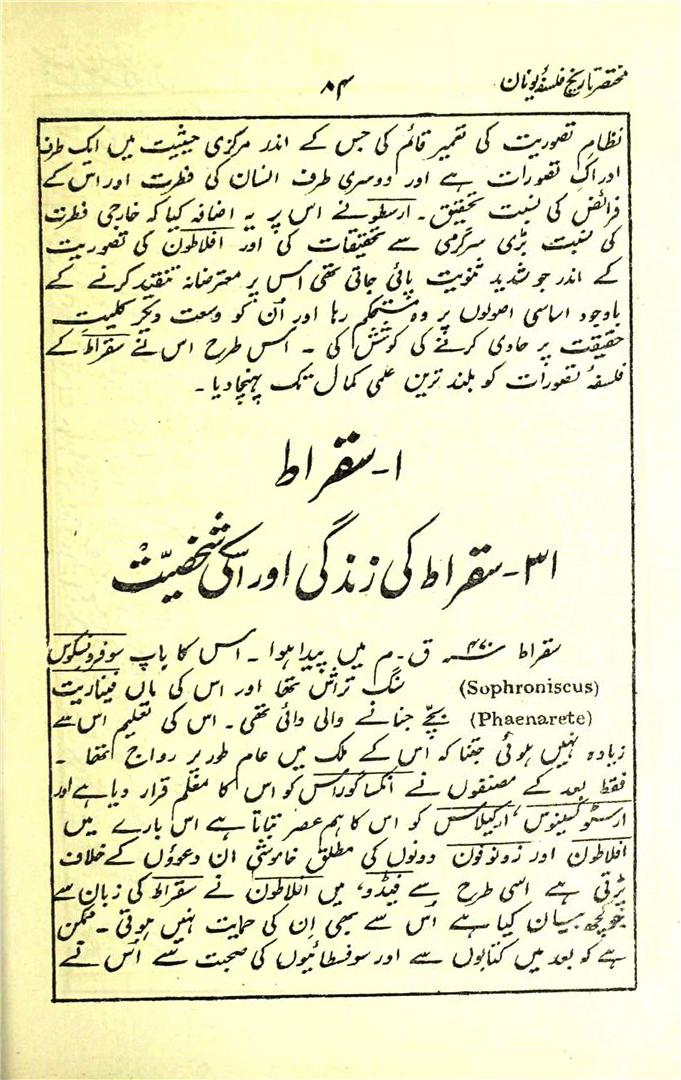 مختصر تاریخ فلسفۂ یونان
۸۴
نظامِ تصوریت کی تعمیر قائم کی جس کے اندر مرکزی حیثیت میں ایک طرف
ادراکِ تصورات ہے اور دوسری طرف انسان کی فطرت اور اس کے
فرائض کی نسبت تحقیق۔ ارسطو نے اس پر یہ اضافہ کیا کہ خارجی فطرت
کی نسبت بڑی سرگرمی سے تحقیقات کی اور افلاطون کی تصوریت
کے اندر جو شدید ثنویت پائی جاتی تھی اس پر معترضانہ تنقید کرنے کے
باوجود اساسی اصولوں پر وہ مستحکم رہا اور اُن کو وسعت دیکر کلیتِ
حقیقت پر حاوی کرنے کی کوشش کی ۔ اس طرح اس نے سقراط کے
فلسفۂ تصورات کو بلند ترین علمی کمال تک پہنچا دیا ۔
۱۔ سقراط
۳۱۔ سقراط کی زندگی اور اسکی شخصیت
سقراط ۴۷۰ ق۔م میں پیدا ہوا ۔ اس کا باپ سوفرونسکوس
(Sophroniscus) سنگ تراش تھا اور اس کی ماں فیناریت
(Phaenarete) بچّے جنانے والی دائی تھی۔ اس کی تعلیم اس سے
زیادہ نہیں ہوئی جتنا کہ اس کے ملک میں عام طور پر رواج تھا ۔
فقط بعد کے مصنفوں نے انکساگورس کو اس کا معلم قرار دیا ہے اور
ارسٹوکسینوس، ارکیلاس کو اس کا ہم عصر بتاتا ہے اس بارے میں
افلاطون اور زنوفون دونوں کی مطلق خاموشی ان دعووں کے خلاف
پڑتی ہے اسی طرح سے فیڈو، میں افلاطون نے سقراط کی زبان سے
جو کچھ بیان کیا ہے اُس سے بھی اِن کی حمایت نہیں ہوتی ۔ ممکن
ہے کہ بعد میں کتابوں سے اور سوفسطائیوں کی صحبت سے اُس نے